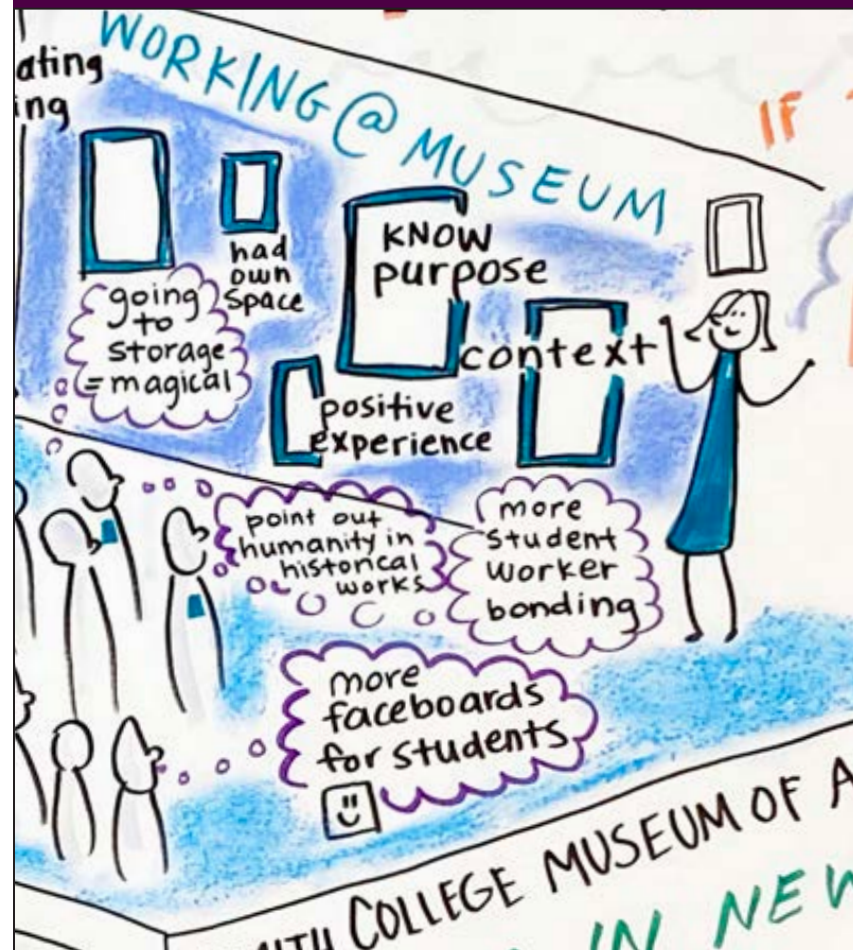 ating
ing
WORKING @ MUSEUM
IF
had
own
space
KNOW
purpose
going
to
storage
= magical
context
positive
experience
point out
humanity in
historical
works
more
student
worker
bonding
more
faceboards
for students
COLLEGE MUSEUM OF A
IN NEW